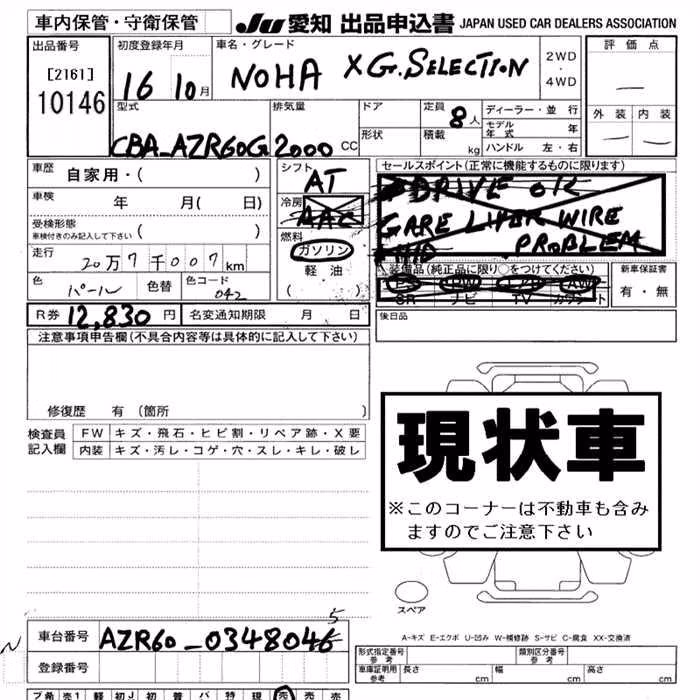 車内保管・守衛保管
JU 愛知 出品申込書 JAPAN USED CAR DEALERS ASSOCIATION
出品番号
[2161]
10146
初度登録年月
16 10月
車名・グレード
NOHA X G.SELECTION
2WD
・
4WD
評価点
外装 内装
型式
CBA-AZR60G
排気量
2000 CC
ドア
形状
定員
8人
積載
kg
ディーラー・並行
モデル年式 年
ハンドル 左・右
車歴
自家用・( )
車検
年 月( 日)
受検形態
車検付きのみ記入して下さい ( )
走行
20万7千007km
色
パール
色替
色コード
042
シフト
AT
冷房
AAC
燃料
ガソリン
軽油
( )
セールスポイント(正常に機能するものに限ります)
DRIVE OK
GARE LIVER WIRE
PROBLEM
装備品(純正品に限り○をつけてください)
PS PW エアB AW
SR ナビ TV カワシート
新車保証書
有・無
R券 12,830円
名変通知期限 月 日
後日品
注意事項申告欄(不具合内容等は具体的に記入して下さい)
修復歴 有 (箇所 )
検査員
記入欄
FW キズ・飛石・ヒビ割・リペア跡・X要
内装 キズ・汚レ・コゲ・穴・スレ・キレ・破レ
現状車
※このコーナーは不動車も含み
ますのでご注意下さい
スペア
A-キズ E-エクボ U-凹み W-補修跡 S-サビ C-腐食 XX-交換済
5
車台番号 AZR60-0348046
登録番号
形式指定番号
参考
類別区分番号
参考
車庫証明用
参考
長さ cm 幅 cm 高さ cm